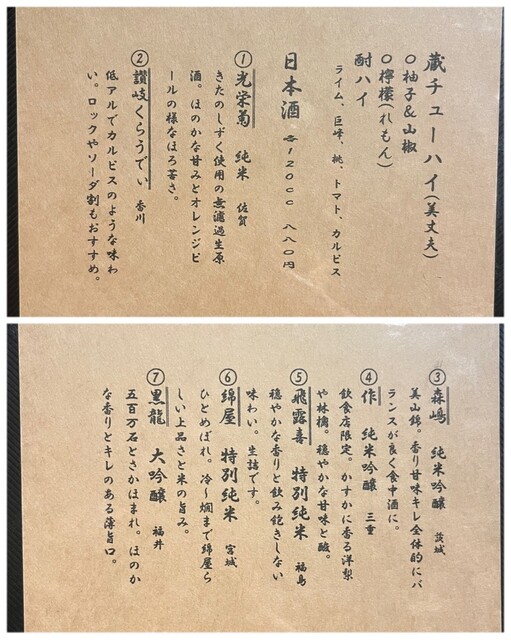 蔵チューハイ(美丈夫)
○柚子&山椒
○檸檬(れもん)
酎ハイ
ライム、巨峰、桃、トマト、カルピス
日本酒 各120cc 八八〇円
①光栄菊 純米 佐賀
きたのしずく使用の無濾過生原
酒。ほのかな甘みとオレンジピ
ールの様なほろ苦さ。
②讃岐くらうでぃ 香川
低アルでカルピスのような味わ
い。ロックやソーダ割もおすすめ。
③森嶋 純米吟醸 茨城
美山錦。香り甘味キレ全体的にバ
ランスが良く食中酒に。
④作 純米吟醸 三重
飲食店限定。かすかに香る洋梨
や林檎。穏やかな甘味と酸。
⑤飛露喜 特別純米 福島
穏やかな香りと飲み飽きしない
味わい。生詰です。
⑥綿屋 特別純米 宮城
ひとめぼれ。冷〜燗まで綿屋ら
しい上品さと米の旨み。
⑦黒龍 大吟醸 福井
五百万石とさかほまれ。ほのか
な香りとキレのある薄旨口。